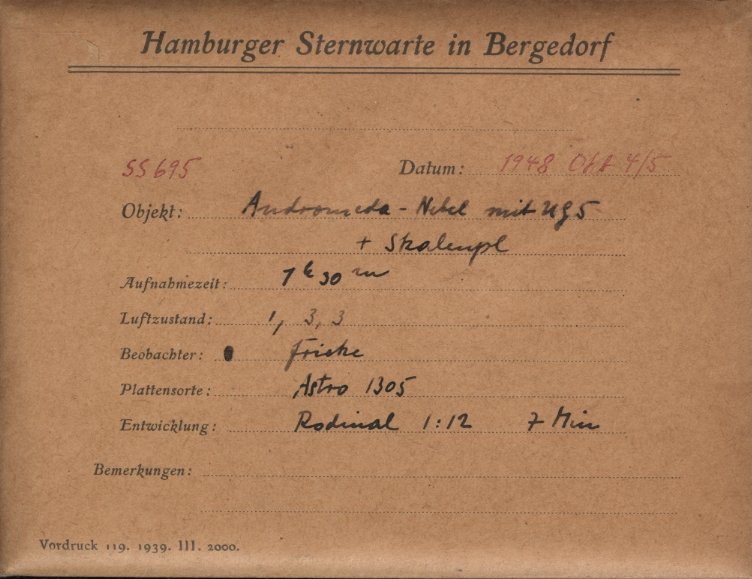 Hamburger Sternwarte in Bergedorf
SS695 Datum: 1948 Okt 4/5
Objekt: Andromeda-Nebel mit UG5
+ Skalenpl
Aufnahmezeit: 1h 30m
Luftzustand: 1, 3, 3
Beobachter: Fricke
Plattensorte: Astro 1305
Entwicklung: Rodinal 1:12 7 Min
Bemerkungen:
Vordruck 119. 1939. III. 2000.